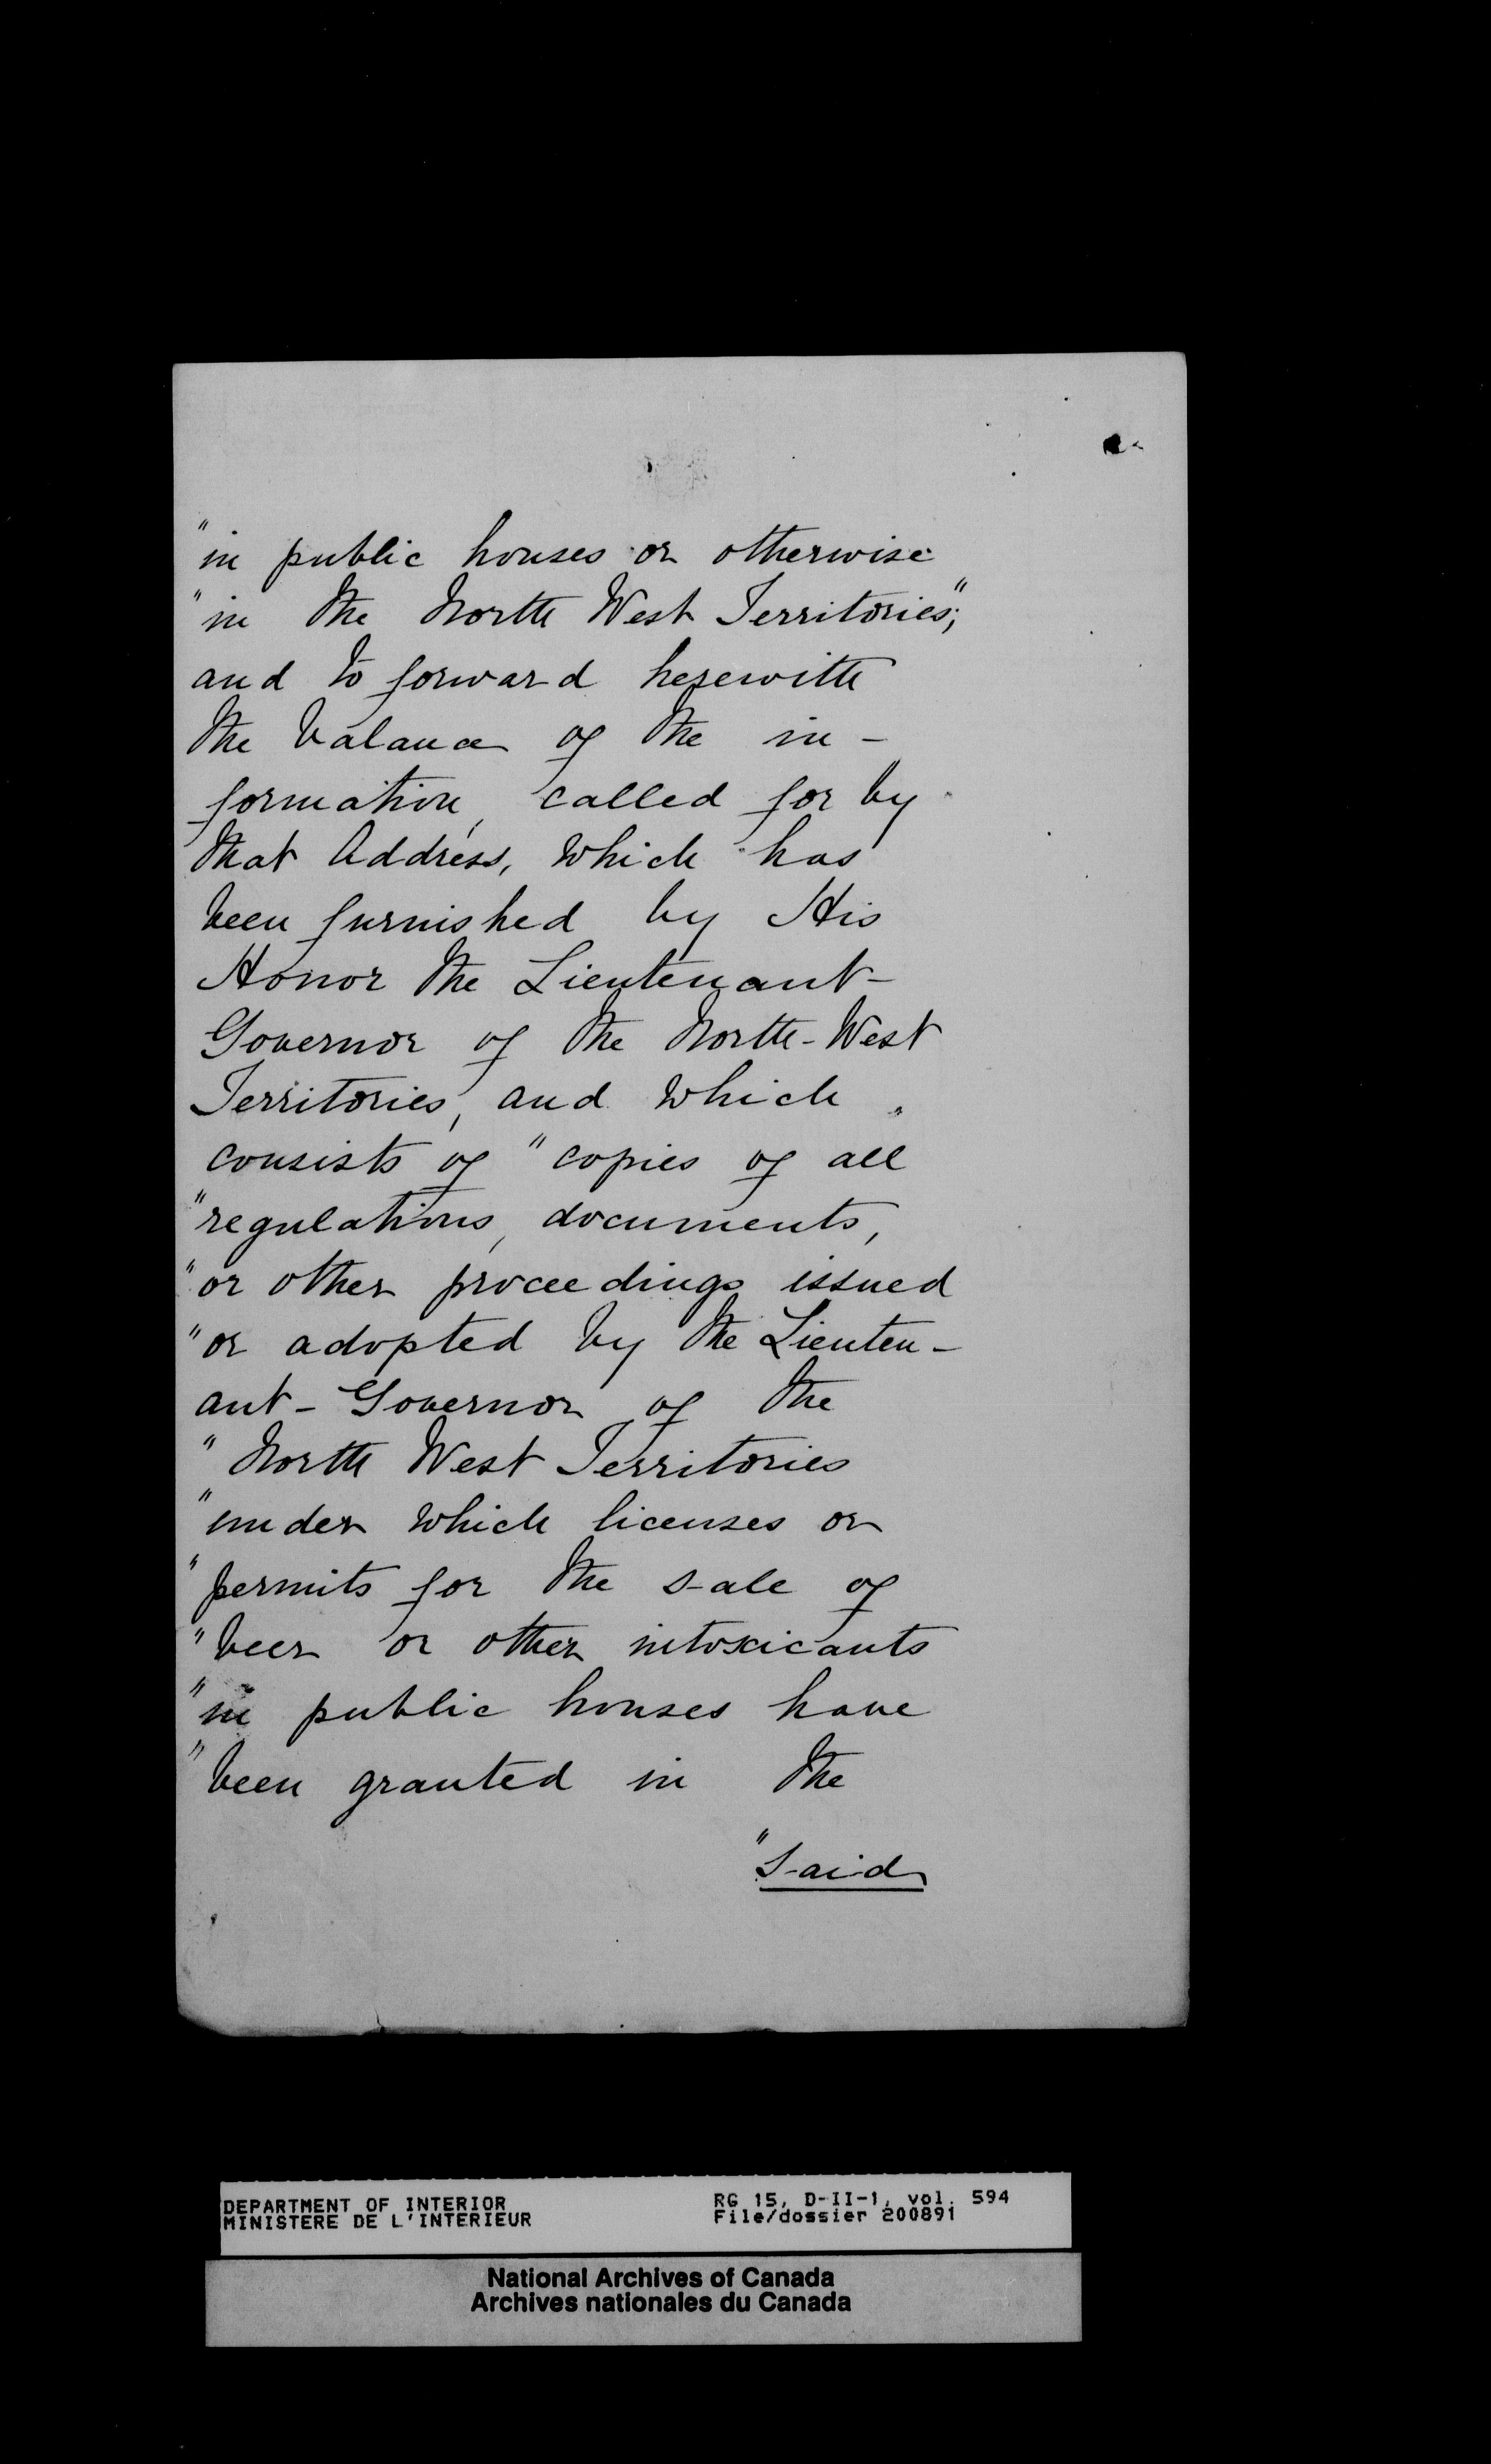 "in public houses or otherwise
"in the North West Territories";
and to forward herewith
the balance of the in-
formation, called for by
that Address, which has
been furnished by His
Honor the Lieutenant-
Governor of the North-West
Territories, and which
consists of "copies of all
"regulations, documents,
"or other proceedings issued
"or adopted by the Lieuten-
ant-Governor of the
"North West Territories
"under which licenses or
"permits for the sale of
"beer or other intoxicants
"in public houses have
"been granted in the
"said
DEPARTMENT OF INTERIOR
MINISTERE DE L'INTERIEUR
RG 15, D-II-1, vol. 594
File/dossier 200891
National Archives of Canada
Archives nationales du Canada